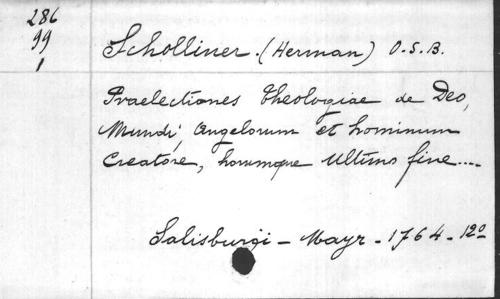 286
99
1
Scholliner (Herman) O.S.B.
Praelectiones theologiae de Deo,
Mundi, angelorum et hominum
Creatore, horumque ultimo fine....
Salisburgi - Mayr - 1764 - 12º